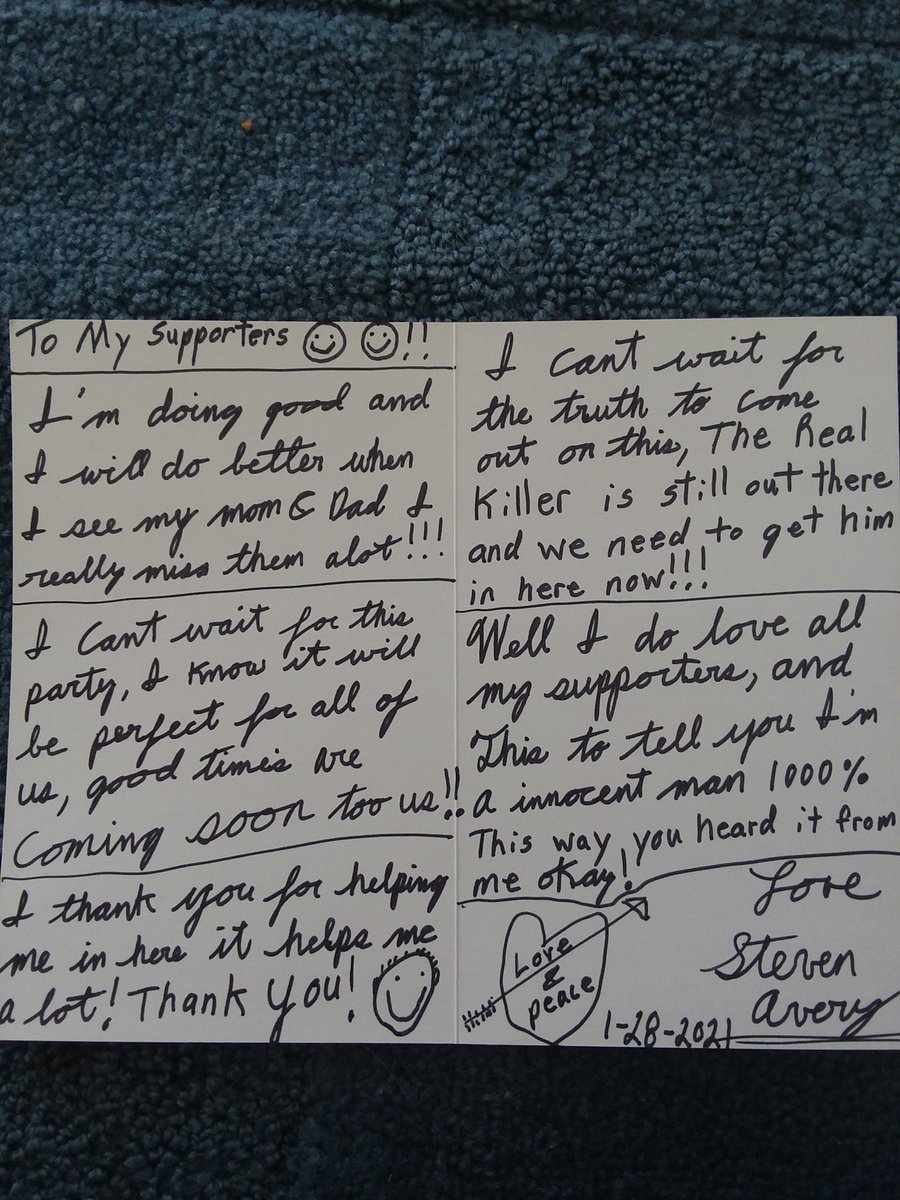 To My Supporters !!
I'm doing good and
I will do better when
I see my mom & Dad I
really miss them alot!!!
I Cant wait for this
party, I know it will
be perfect for all of
us, good times are
Coming soon too us!!
I thank you for helping
me in here it helps me
a lot! Thank You!
I cant wait for
the truth to come
out on this, The Real
Killer is still out there
and we need to get him
in here now!!!
Well I do love all
my supporters, and
This to tell you I'm
a innocent man 1000%
This way you heard it from
me okay!
Love
& 
peace
1-28-2021
Love
Steven
Avery